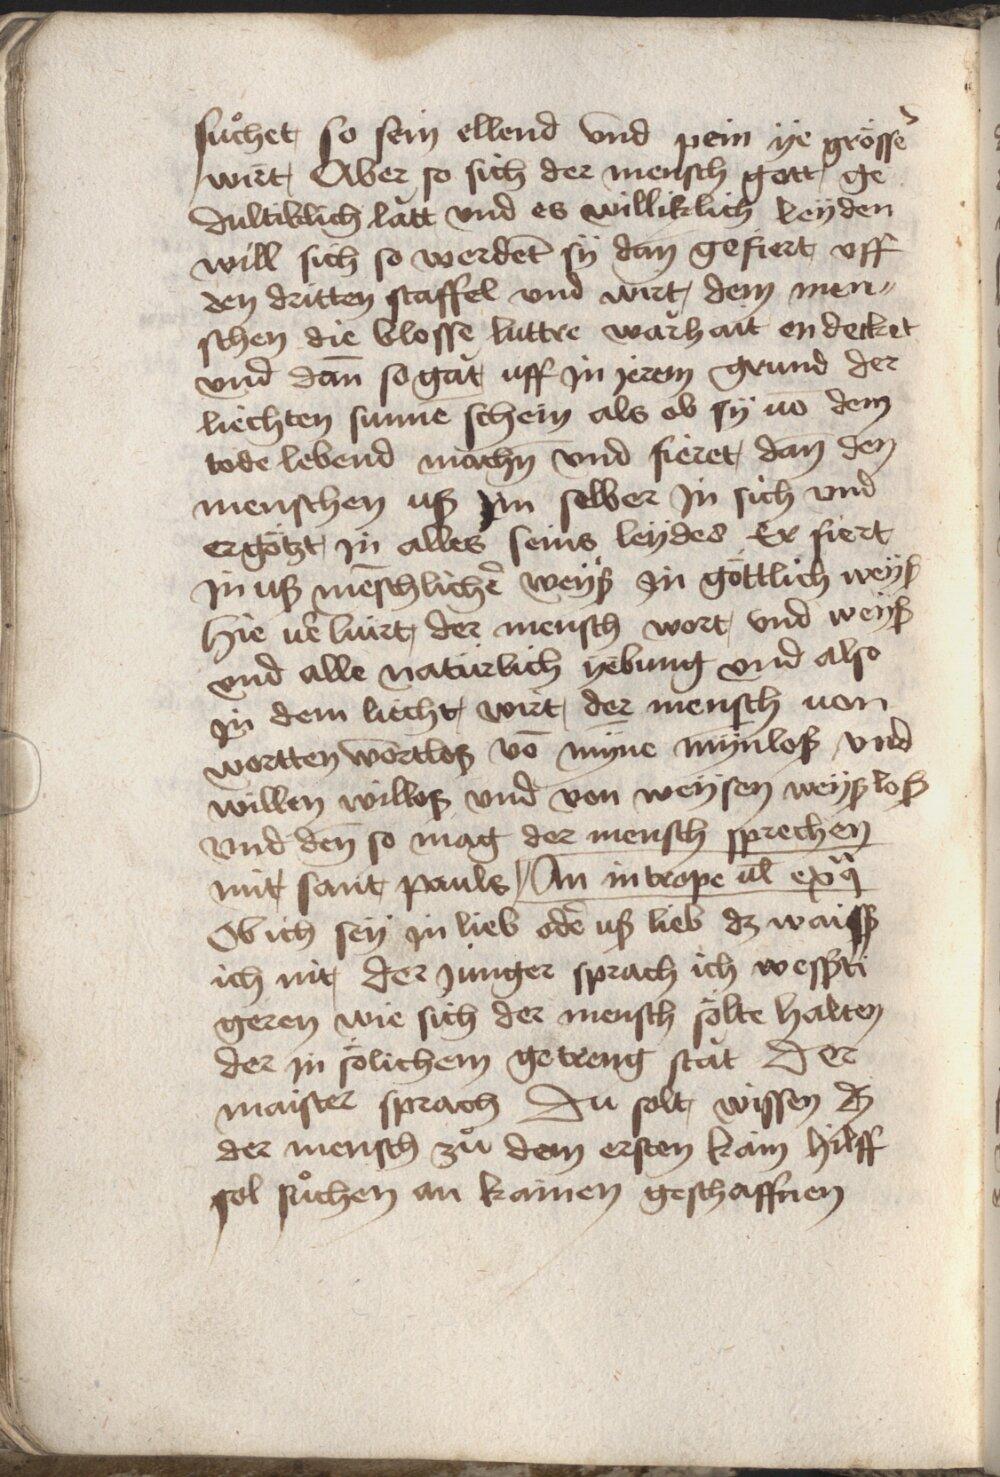 sůchet so sein ellend vnd pein ÿe grösser̄
wirt Aber so sich der mensch gott ge
dultiklich lǎtt vnd es williklich leyden
will sich so werdent̄ sÿ dan̄ gefiert vff
den dritten staffel vnd wirt dem men„
schen die blosse luttre warhait endecket
vnd dan̄ so gǎt uff jn jerem grund der
liechten sunne schein als ob sÿ vō dem
tode lebend machn̄ vnd fieret dan̄ den
menschen uß jm selber jn sich vnd
ergötzt jn alles seins leydes Er fiert
jn uß mēschlichē weyß jn göttlich weyß
hie v̄e lúrt der mensch wort vnd weyß
vnd alle natúrlich yebung vnd also
jn dem liecht wirt der mensch von
wortten wortloß vō mýne mýnloß vnd
willen willoß vnd von weysen weyßloß
vnd den̄ so mag der mensch sprechen
mit sant pauls An in trope ul̄ exᵃ
Ob ich seÿ jn lieb odē uß lieb dz waiß
ich nit der junger sprach ich west
geren wie sich der mensch sölte halten
der jn sölichem getreng stǎt Der
maister sprach Du solt wissen dz
der mensch zů dem ersten kain hilff
sol sůchen an kainen geschaffnen